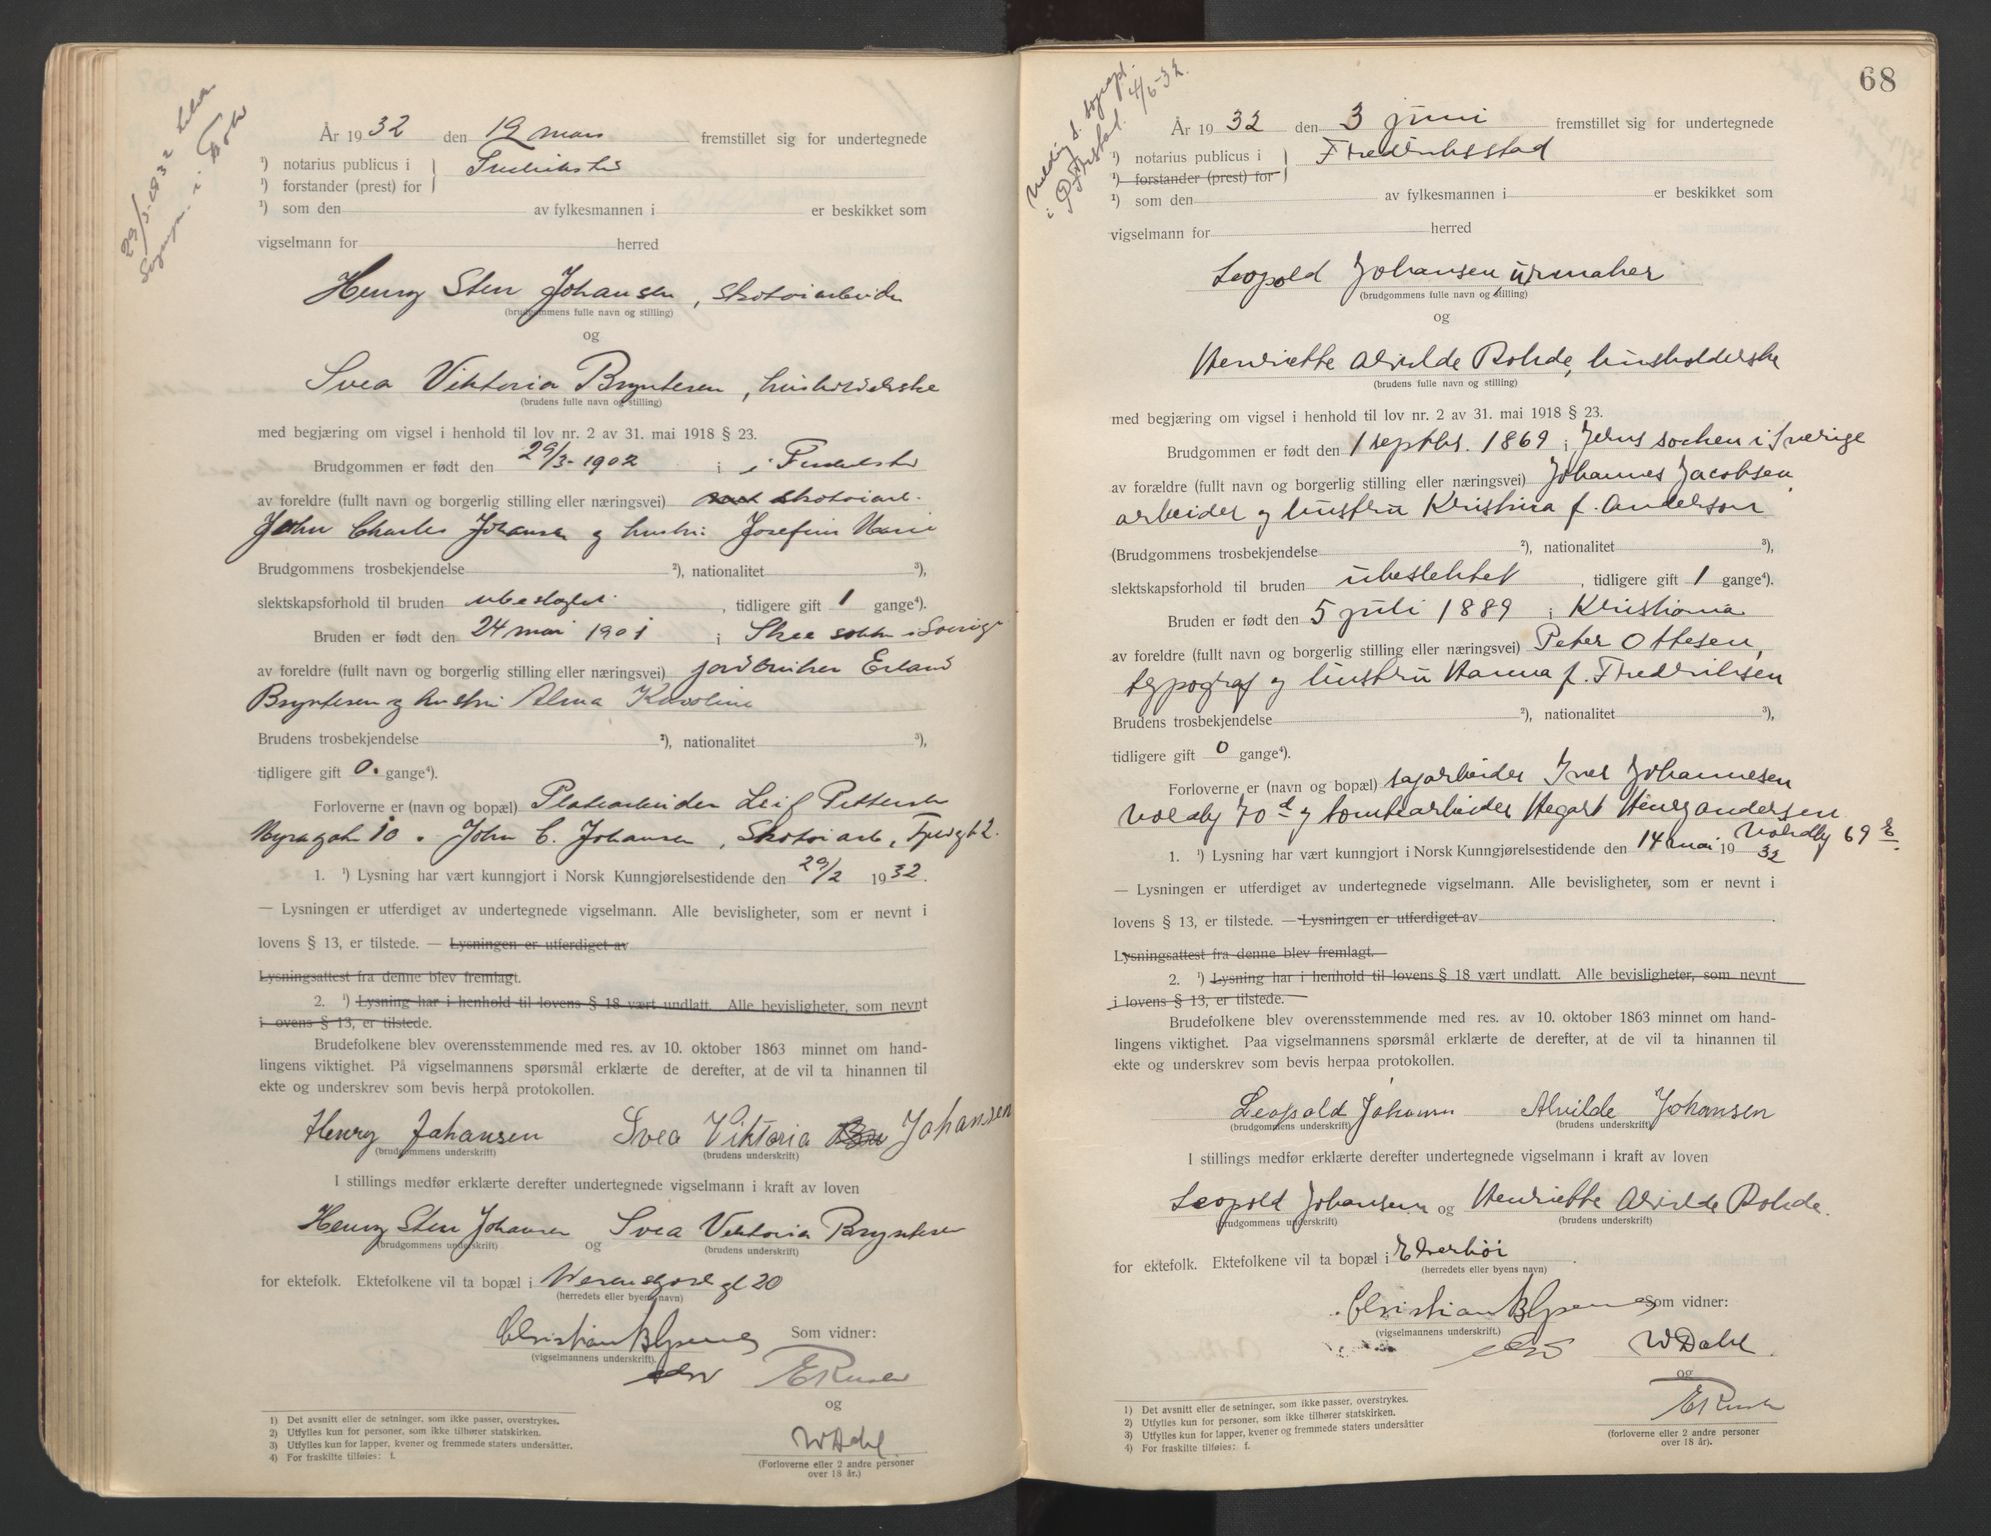 29/3-1932
År 1932 den 12 mars fremstillet sig for undertegnede
¹) notarius publicus i
¹) forstander (prest) for
¹) som den av fylkesmannen i er beskikket som
vigselmann for herred
Henry Sten Johansen, skotøiarbeider
(brudgommens fulle navn og stilling)
og
Svea Viktoria Bryntesen, husholderske
(brudens fulle navn og stilling)
med begjæring om vigsel i henhold til lov nr. 2 av 31. mai 1918 § 23.
Brudgommen er født den 29/3-1902 i
av foreldre (fullt navn og borgerlig stilling eller næringsvei) skotøiarb.
John Charles Johansen og hustru Josefine Marie
Brudgommens trosbekjendelse ²), nationalitet ³),
slektskapsforhold til bruden , tidligere gift 1 gange⁴).
Bruden er født den 24 mai 1901 i Skee sokn i Sverige
av foreldre (fullt navn og borgerlig stilling eller næringsvei) jordbruker Erland
Bryntesen og hustru Alma Karoline
Brudens trosbekjendelse ²), nationalitet ³),
tidligere gift 0. gange⁴).
Forloverne er (navn og bopæl) Platearbeider Leif Pettersen
Myragata 10. John C. Johansen, Skotøiarb.,
1. ¹) Lysning har vært kunngjort i Norsk Kunngjørelsestidende den 29/2 1932.
— Lysningen er utferdiget av undertegnede vigselmann. Alle bevisligheter, som er nevnt i
lovens § 13, er tilstede. — Lysningen er utferdiget av
Lysningsattest fra denne blev fremlagt.
2. ¹) Lysning har i henhold til lovens § 18 vært undlatt. Alle bevisligheter, som nevnt
i ovens § 13, er tilstede.
Brudefolkene blev overensstemmende med res. av 10. oktober 1863 minnet om hand-
lingens viktighet. På vigselmannens spørsmål erklærte de derefter, at de vil ta hinannen til
ekte og underskrev som bevis herpå protokollen.
Henry Johansen Svea Viktoria Johansen
(brudgommens underskrift) (brudens underskrift)
I stillings medfør erklærte derefter undertegnede vigselmann i kraft av loven
Henry Sten Johansen og Svea Viktoria Bryntesen
(brudgommens underskrift) (brudens underskrift)
for ektefolk. Ektefolkene vil ta bopæl i
(herredets eller byens navn)
Som vidner:
(vigselmannens underskrift).
og
W Dahl
(Forloverne eller 2 andre personer
over 18 år.)
1) Det avsnitt eller de setninger, som ikke passer, overstrykes.
2) Utfylles kun for personer, som ikke tilhører statskirken.
3) Utfylles kun for lapper, kvener og fremmede staters undersåtter.
4) For fraskilte tilføies: f.
68
4/6-32.
År 1932 den 3 juni fremstillet sig for undertegnede
¹) notarius publicus i Fredriksstad
¹) forstander (prest) for
¹) som den av fylkesmannen i er beskikket som
vigselmann for herred
Leopold Johansen, urmaker
(brudgommens fulle navn og stilling)
og
Henriette Alvilde Rohde, husholderske
(brudens fulle navn og stilling)
med begjæring om vigsel i henhold til lov nr. 2 av 31. mai 1918 § 23.
Brudgommen er født den 1 septbr. 1869 i Jerns socken i Sverige
av forældre (fullt navn og borgerlig stilling eller næringsvei) Johannes Jacobsen,
arbeider og hustru Kristina f. Anderson
(Brudgommens trosbekjendelse ²), nationalitet ³),
slektskapsforhold til bruden ubeslektet, tidligere gift 1 gange⁴).
Bruden er født den 5 juli 1889 i Kristiania
av foreldre (fullt navn og borgerlig stilling eller næringsvei) Peter Ottesen,
typograf og hustru Hanna f. Fredriksen
Brudens trosbekjendelse ²), nationalitet ³),
tidligere gift 0 gange⁴).
Forloverne er (navn og bopæl) sagarbeider Iver Johannesen
og tomtearbeider Henry Andersen
1. ¹) Lysning har vært kunngjort i Norsk Kunngjørelsestidende den 14 mai 1932
— Lysningen er utferdiget av undertegnede vigselmann. Alle bevisligheter, som er nevnt i
lovens § 13, er tilstede. — Lysningen er utferdiget av .
Lysningsattest fra denne blev fremlagt.
2. ¹) Lysning har i henhold til lovens § 18 vært undlatt. Alle bevisligheter, som nevnt
i lovens § 13, er tilstede.
Brudefolkene blev overensstemmende med res. av 10. oktober 1863 minnet om hand-
lingens viktighet. Paa vigselmannens spørsmål erklærte de derefter, at de vil ta hinannen til
ekte og underskrev som bevis herpaa protokollen.
Leopold Johansen Alvilde Johansen
(brudgommens underskrift) (brudens underskrift)
I stillings medfør erklærte derefter undertegnede vigselmann i kraft av loven
Leopold Johansen og Henriette Alvilde Rohde.
(brudgommens underskrift) (brudens underskrift)
for ektefolk. Ektefolkene vil ta bopæl i
(herredets eller byens navn)
Som vidner:
(vigselmannens underskrift.)
W Dahl
og
(forloverne eller 2 andre personer
over 18 år).
1) Det avsnitt eller de setninger, som ikke passer, overstrykes.
2) Utfylles kun for personer, som ikke tilhører statskirken.
3) Utfylles kun for lapper, kvener og fremmede staters undersåtter
4) For fraskilte tilføies: f.